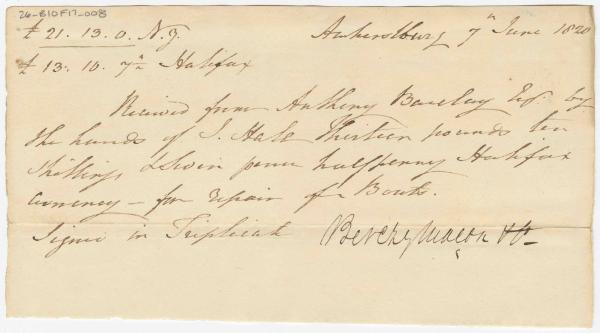 26-B10F17-008
£ 21. 13. 0. N.Y. Amherstburg 7th June 1820
£ 13. 10. 7½ Halifax
Received from Anthony Barclay Esq. by
the hands of J. Hale Thirteen pounds ten
Shillings & seven pence halfpenny Halifax
Currency — for repair of Boats.
Signed in Triplicate